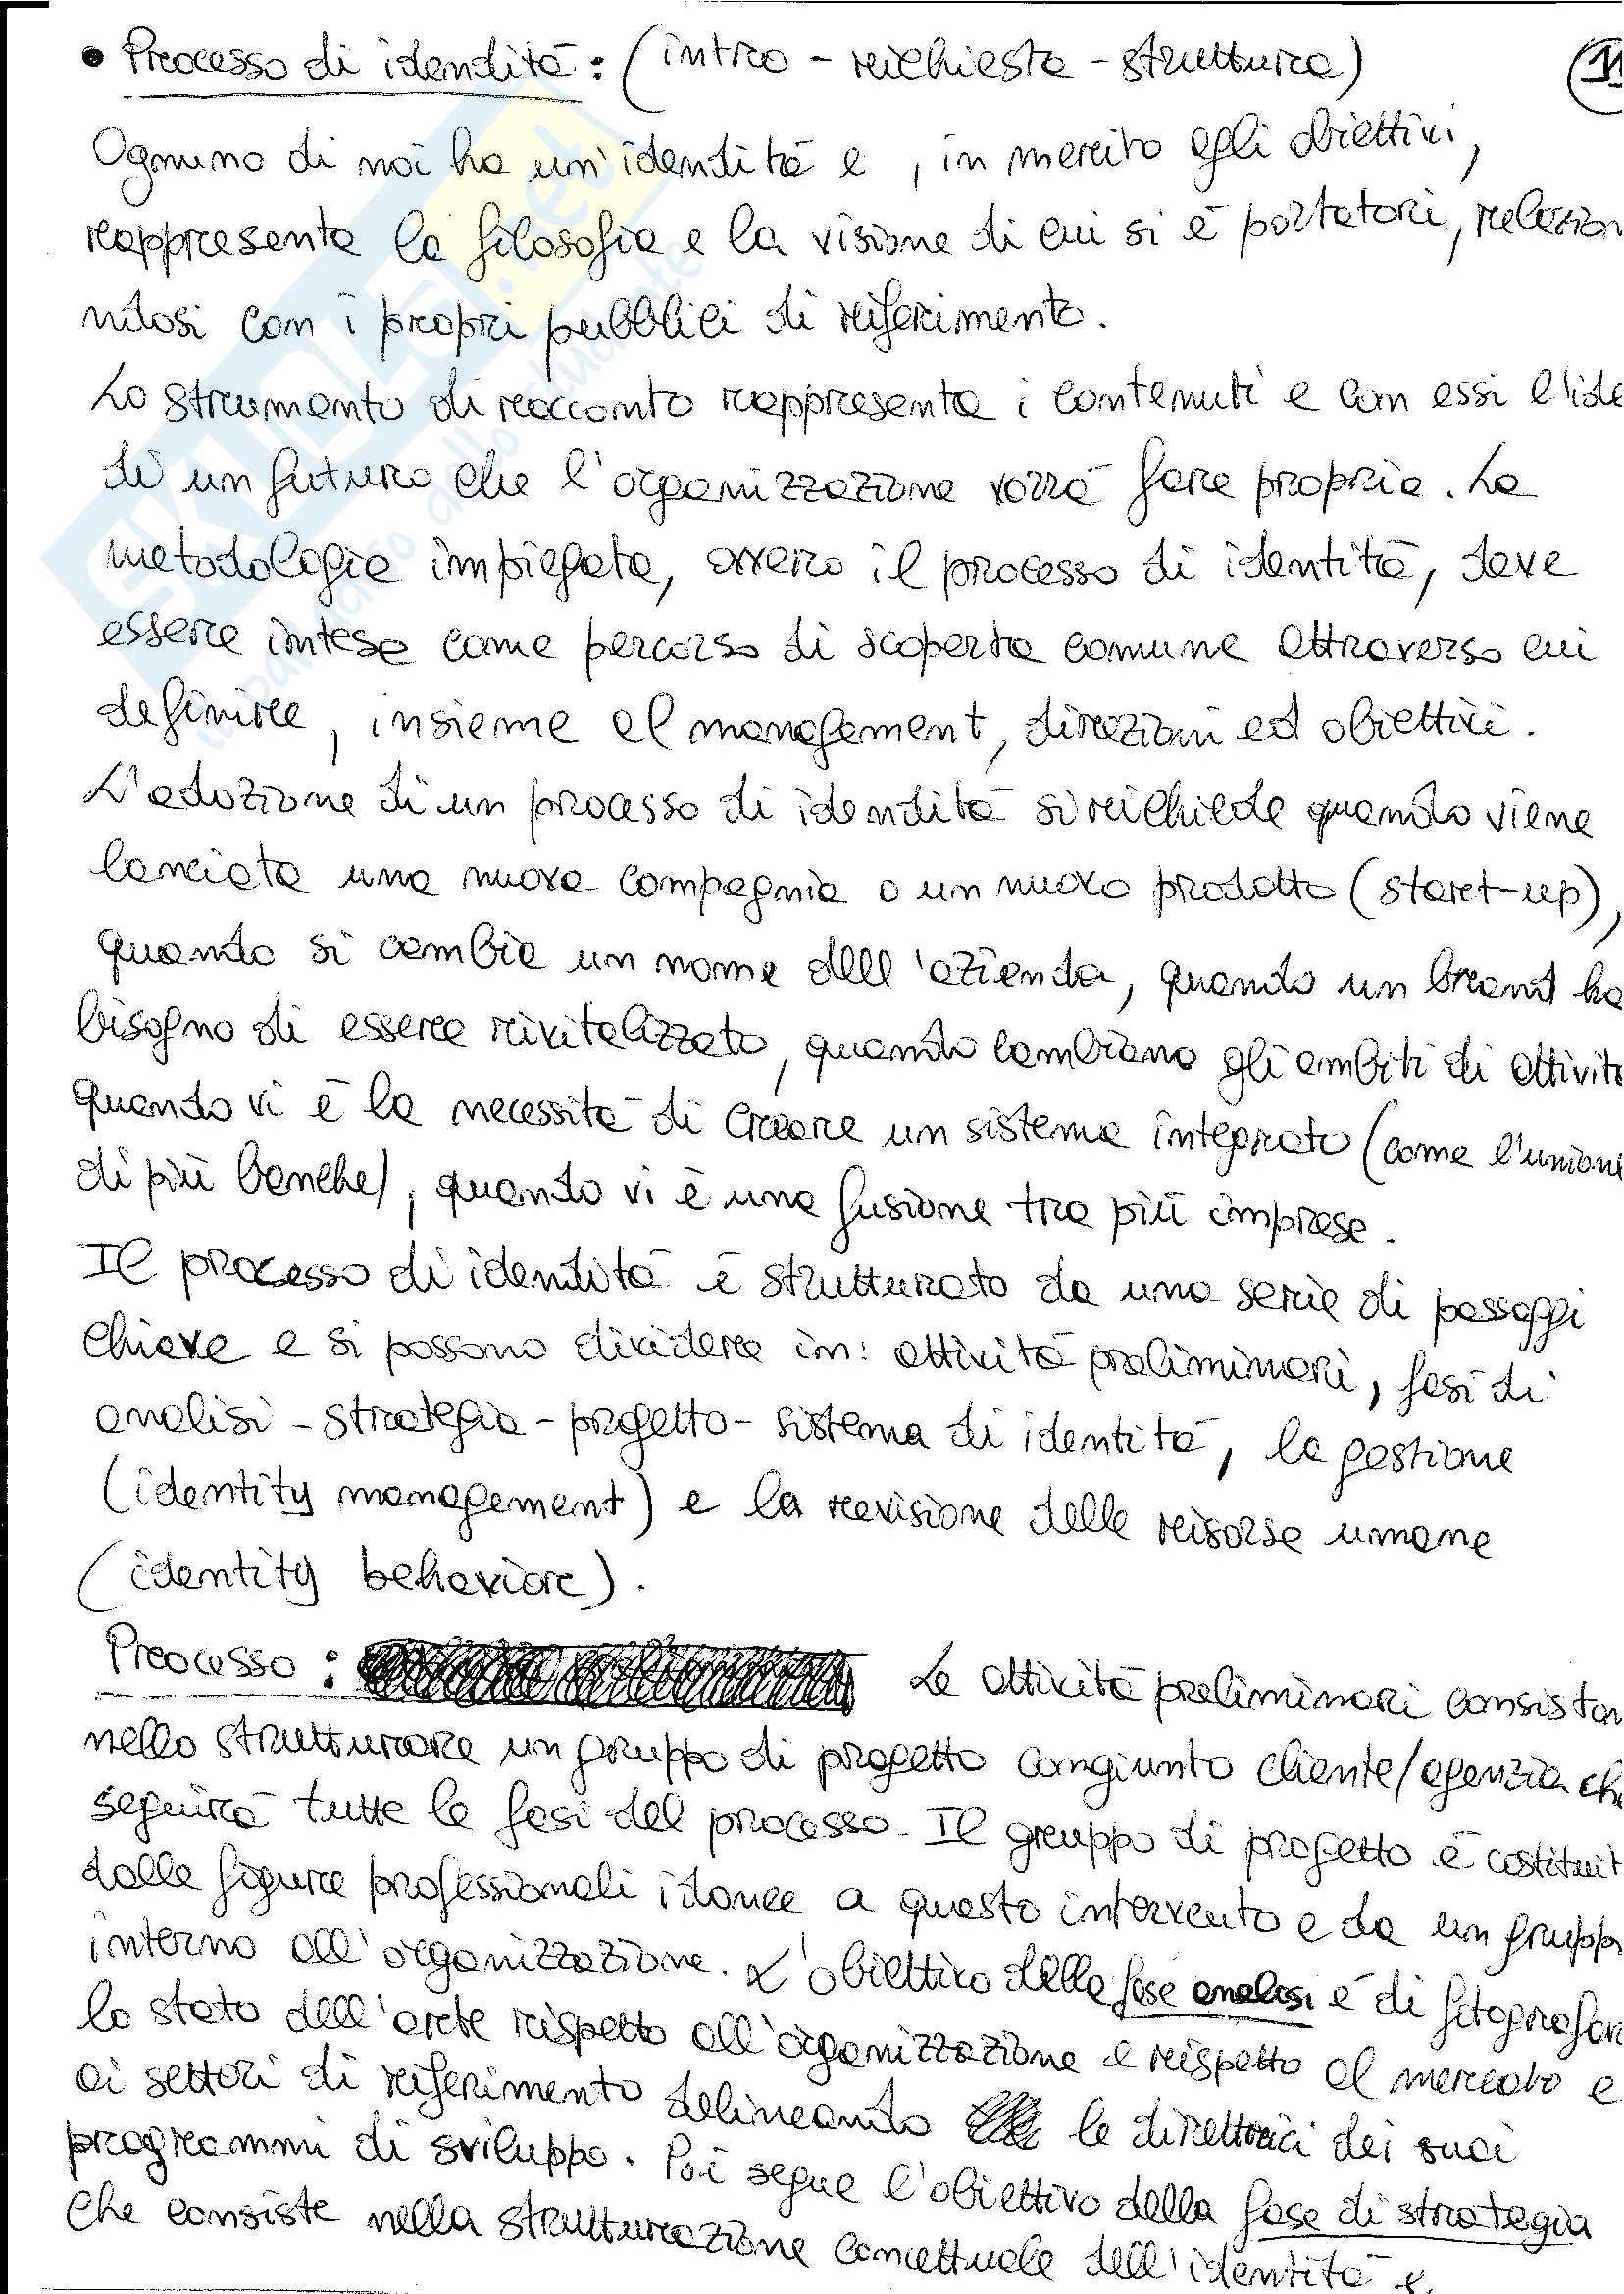 • Processo di idendità: (intro - richiesta - struttura)
Ognuno di noi ha un'idendità e, in merito agli obiettivi,
rappresenta la filosofia e la visione di cui si è portatori, relazion
ndosi con i propri pubblici di riferimento.
Lo strumento di racconto rappresenta i contenuti e con essi l'ide
di un futuro che l'organizzazione vorrà fare propria. La
metodologia impiegata, ovvero il processo di identità, deve
essere inteso come percorso di scoperta comune attraverso cui
definire, insieme al management, direzioni ed obiettivi.
L'adozione di un processo di idendità si richiede quando viene
lanciata una nuova compagnia o un nuovo prodotto (start-up),
quando si cambia un nome dell'azienda, quando un brand ha
bisogno di essere rivitalizzato, quando cambiano gli ambiti di attivit
quando vi è la necessità di creare un sistema integrato (come l'unione
di più banche), quando vi è una fusione tra più imprese.
Il processo di idendità è strutturato da una serie di passaggi
chiave e si possono dividere in: attività preliminari, fasi di
analisi - strategia - progetto - sistema di identità, la gestione
(identity management) e la revisione delle risorse umane
(identity behaviore).
Processo: Le attività preliminari consiston
nello strutturare un gruppo di progetto congiunto cliente/agenzia che
seguirà tutte le fasi del processo. Il gruppo di progetto è costituit
dalle figure professionali idonee a questo intervento e da un grupp
interno all'organizzazione. L'obiettivo della fase analisi è di fotografar
lo stato dell'arte rispetto all'organizzazione e rispetto al mercato e
ai settori di riferimento delineando le direttrici dei suoi
programmi di sviluppo. Poi segue l'obiettivo della fase di strategia
che consiste nella strutturazione concettuale dell'identità e